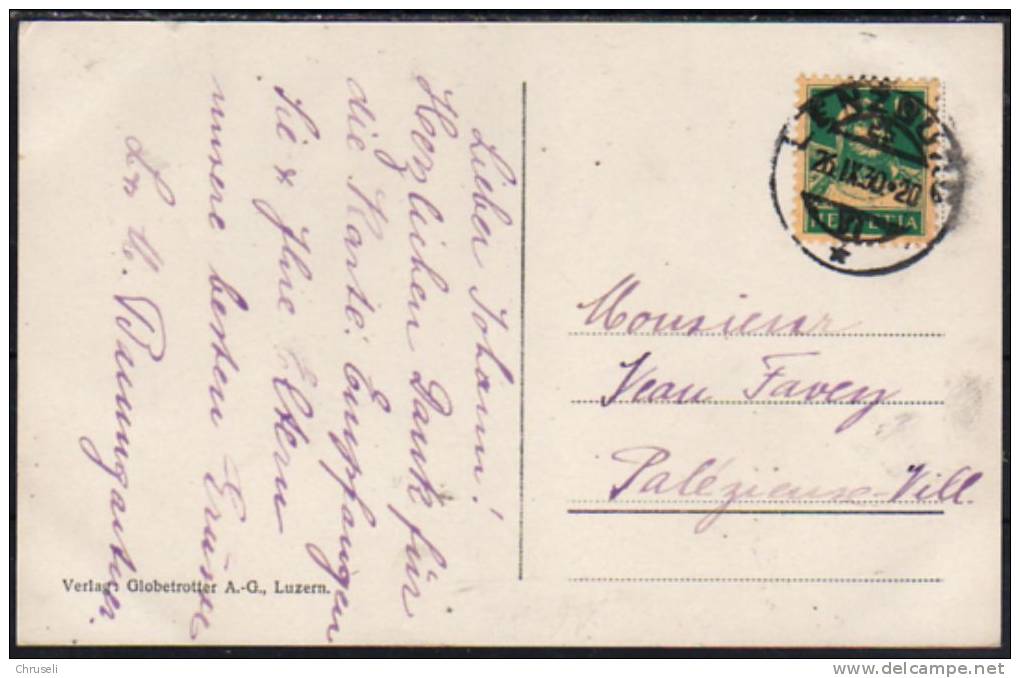 Lieber Johann!
Herzlichen Dank für
die Karte. Empfangen
Sie & Ihre Eltern
unsere besten Grüsse
Baumgartner.
Verlag: Globetrotter A.-G., Luzern.
LENZBURG
26.IX.30.20
HELVETIA
Monsieur
Jean Favey
Palézieux-Vill
Chruseli
delcampe.net